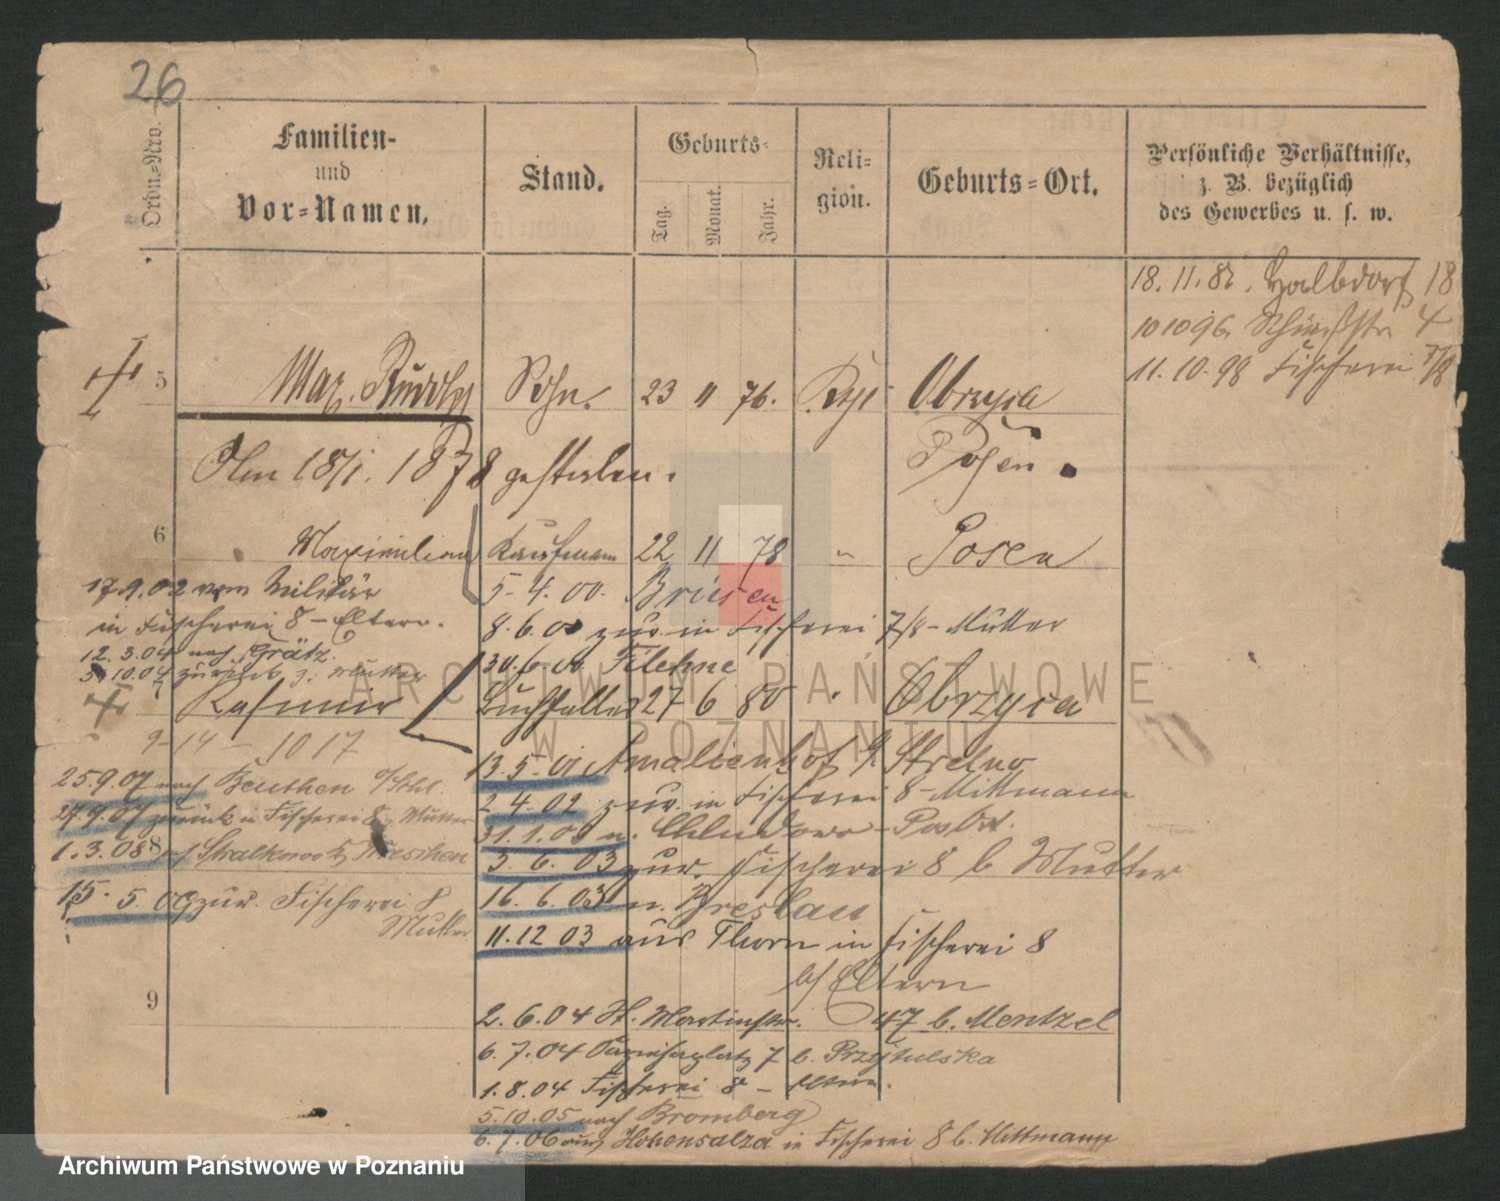 26
Ordn.-Nro.
Familien-
und
Vor-Namen.
Stand.
Geburts-
Tag.
Monat.
Jahr.
Reli-
gion.
Geburts-Ort.
Persönliche Verhältnisse,
z. B. bezüglich
des Gewerbes u. s. w.
18. 11. 8 Halbdorf 18
10 10 96. 4
11. 10. 98 Fischerei 7/8
5 Max. Sohn. 23 11 76. Kth Obrzyca
Posen.
Am 18/1. 1878 gestorben.
6 Maximilian Kaufmann 22 11 78 " Posen
17.9.02 vom Militär
in Fischerei 8 - Eltern.
12. 3.04 nach Grätz.
5.10.04 zurück z. Mutter
5. 4. 00. Briesen
8. 6. 00 zur. in Fischerei 7/8 - Mutter
30. 6. 00 Filehne
Kasimir 27 6 80 " Obrzyca
9-14 - 10 17
25.9.07 nach Beuthen O/Schl.
27.9.07 zurück in Fischerei 8 - Mutter
1. 3. 08 Stralkowo Kr. Wreschen
15. 5. 09 zur. Fischerei 8
Mutter
13. 5. 01 Amalienhof Strelno
2 4. 02 zur. in Fischerei 8 - Mittmann
31. 1. 03 n. Chludowo - Post.
3. 6. 03 zur. Fischerei 8 b Mutter
16. 6. 03 n. Breslau
11. 12 03 aus Thorn in Fischerei 8
b/ Eltern
9
2. 6. 04 St. Martinstr. 47 b. Mentzel
6. 7. 04 7 b. Przytulska
1. 8. 04 Fischerei 8 - Eltern.
5. 10. 05 nach Bromberg
6. 7. 06 aus Hohensalza in Fischerei 8 b. Mittmann
ARCHIWUM PAŃSTWOWE
W POZNANIU
Archiwum Państwowe w Poznaniu